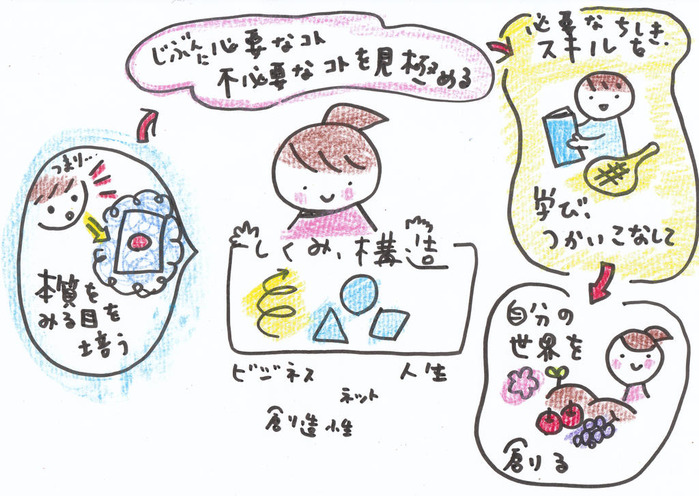 じぶんに必要なコト
不必要なコトを見極める
必要なちしき、
スキルを
学び、
つかいこなして
つまり…
本質を
みる目を
培う
しくみ、構造
ビジネス
人生
ネット
創造性
自分の
世界を
創る